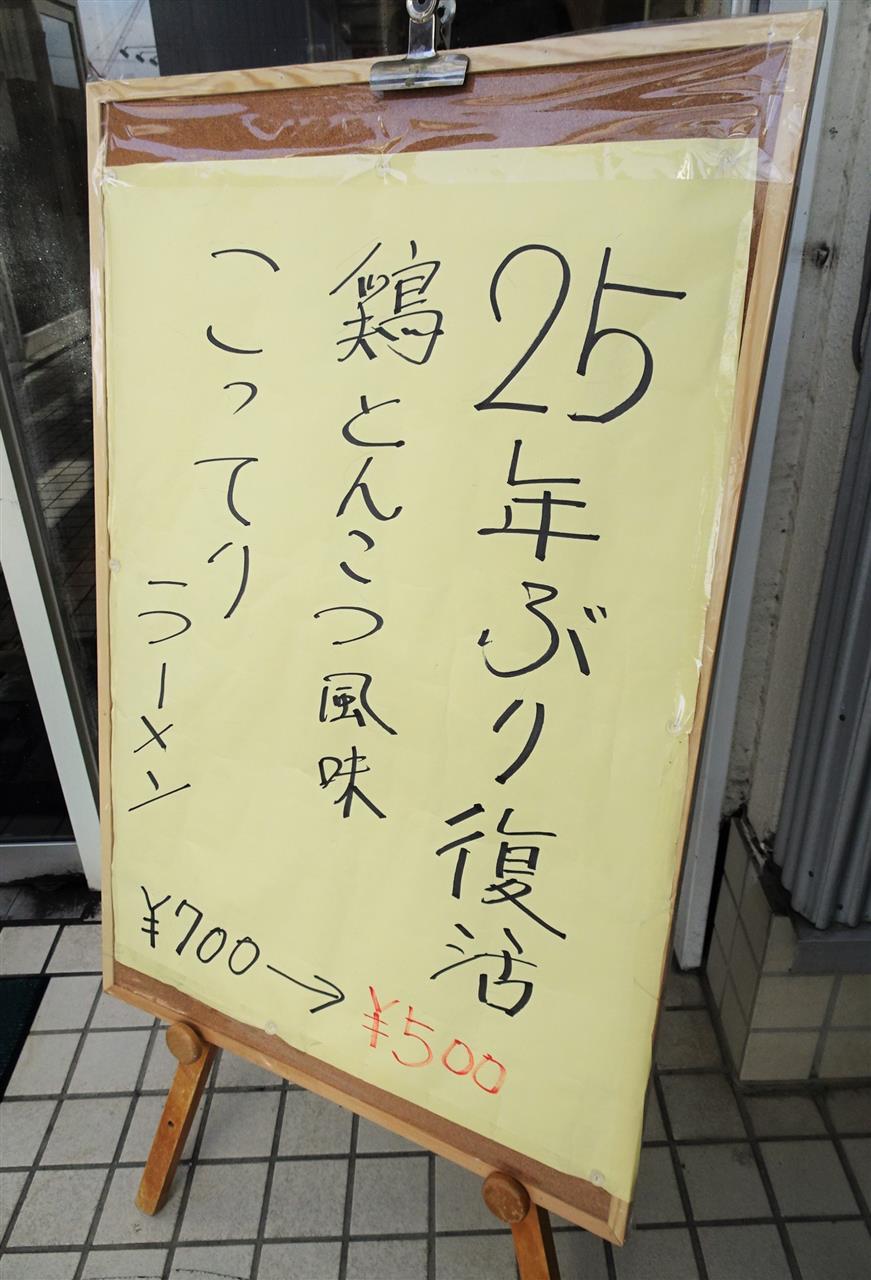 25年ぶり復活
鶏とんこつ風味
こってり
ラーメン
¥700→¥500